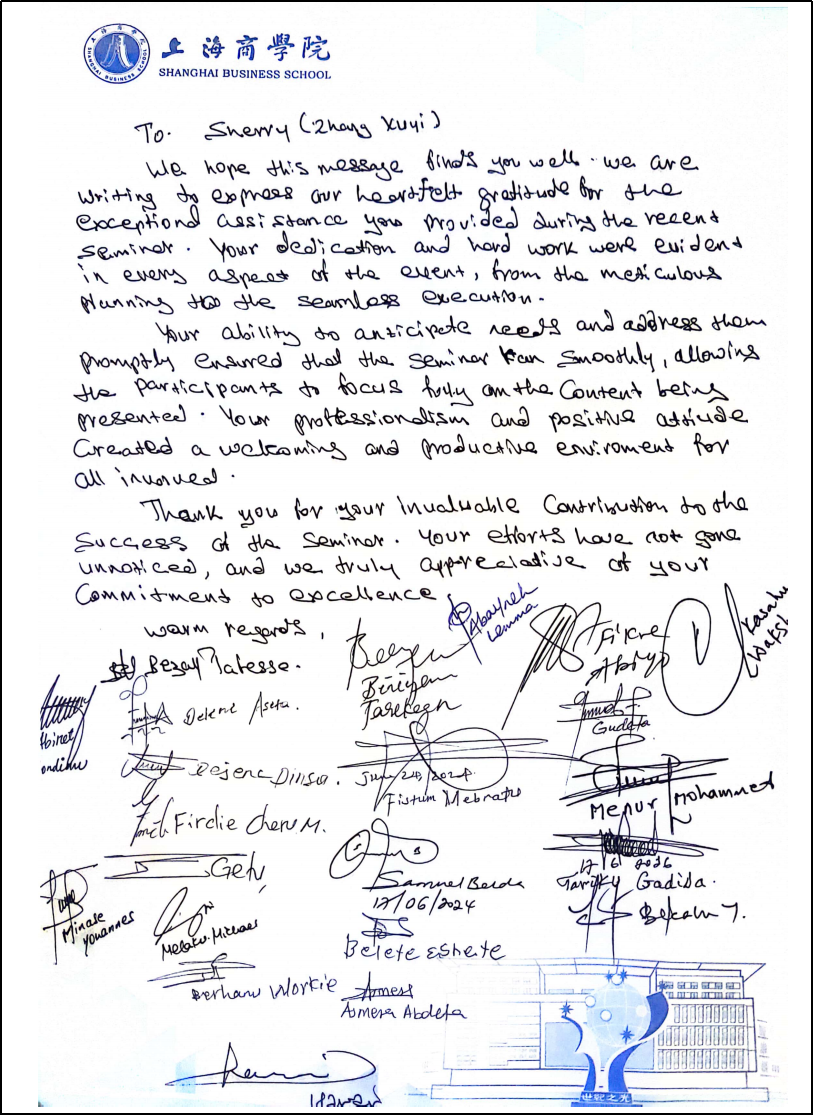 上海商學院
SHANGHAI BUSINESS SCHOOL
To. Sherry (Zhang Xuyi)
We hope this message finds you well. we are
writing to express our heartfelt gratitude for the
exceptional assistance you provided during the recent
seminar. Your dedication and hard work were evident
in every aspect of the event, from the meticulous
planning to the seamless execution.
Your ability to anticipate needs and address them
promptly ensured that the seminar ran smoothly, allowing
the participants to focus fully on the Content being
presented. Your professionalism and positive attitude
Created a welcoming and productive enviroment for
all involved.
Thank you for your invaluable Contribution to the
Success of the Seminar. Your efforts have not gone
unnoticed, and we truly appreciative of your
Commitment to excellence.
warm regards,
Abayneh
Lemma
Bezay Tatesse.
Fikre
Tarekegn
Gudeta
Dejene Dinsa.
Fistum Mebratu
Menur Mohammed
Firdie Cheru M.
Getu
Samuel
17/06/2024
Gadisa.
Minase
Youannes
Melaku Michael
Belete Eshete
Berhanu Workie
Asmera Abdeta
世纪之光